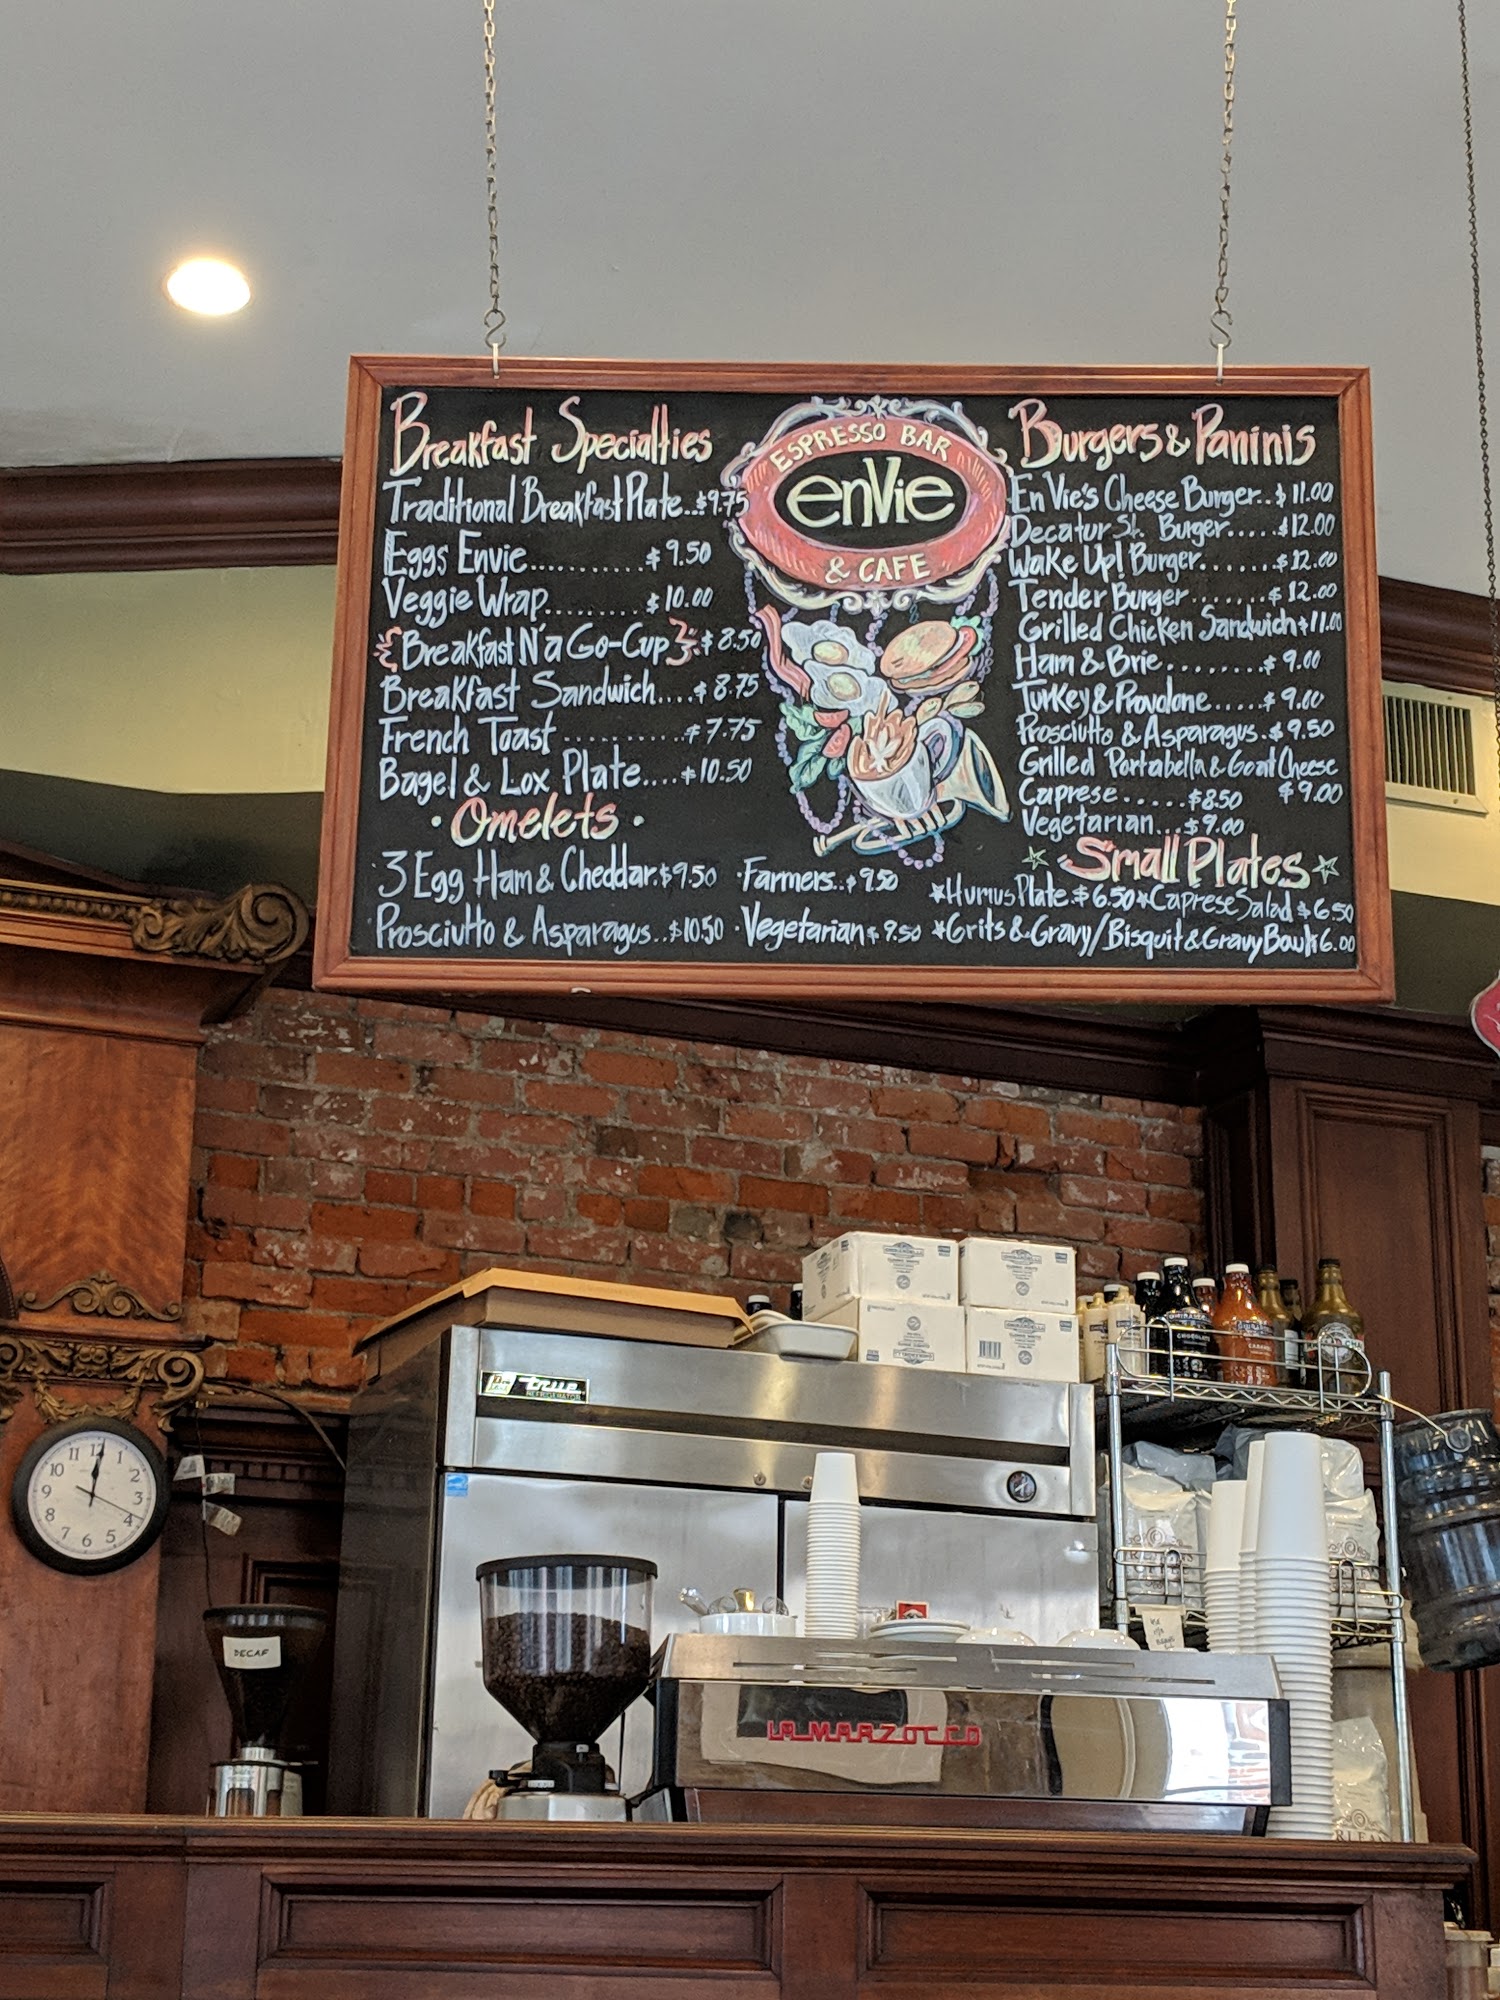 Breakfast Specialties
Traditional Breakfast Plate..$9.75
Eggs Envie...........$9.50
Veggie Wrap.........$10.00
Breakfast N'a Go-Cup $8.50
Breakfast Sandwich....$8.75
French Toast ..........$7.75
Bagel & Lox Plate....$10.50
· Omelets ·
·3 Egg Ham & Cheddar.$9.50
Prosciutto & Asparagus..$10.50
·Farmers..$9.50
·Vegetarian $9.50
ESPRESSO BAR
enVie
& CAFE
Burgers & Paninis
En Vie's Cheese Burger..$11.00
Decatur St. Burger.....$12.00
Wake Up! Burger.......$12.00
Tender Burger.......$12.00
Grilled Chicken Sandwich $11.00
Ham & Brie........$9.00
Turkey & Provolone.....$9.00
Prosciutto & Asparagus.$9.50
Grilled Portabella & Goat Cheese
$9.00
Caprese.....$8.50
Vegetarian...$9.00
☆ Small Plates ☆
*Humus Plate.$6.50 *Caprese Salad $6.50
*Grits & Gravy/Bisquit & Gravy Bowl $6.00
true
REFRIGERATOR
CHOCOLATE
CARAMEL
12
1
2
3
4
5
6
7
8
9
10
11
DECAF
LA MARZOCCO